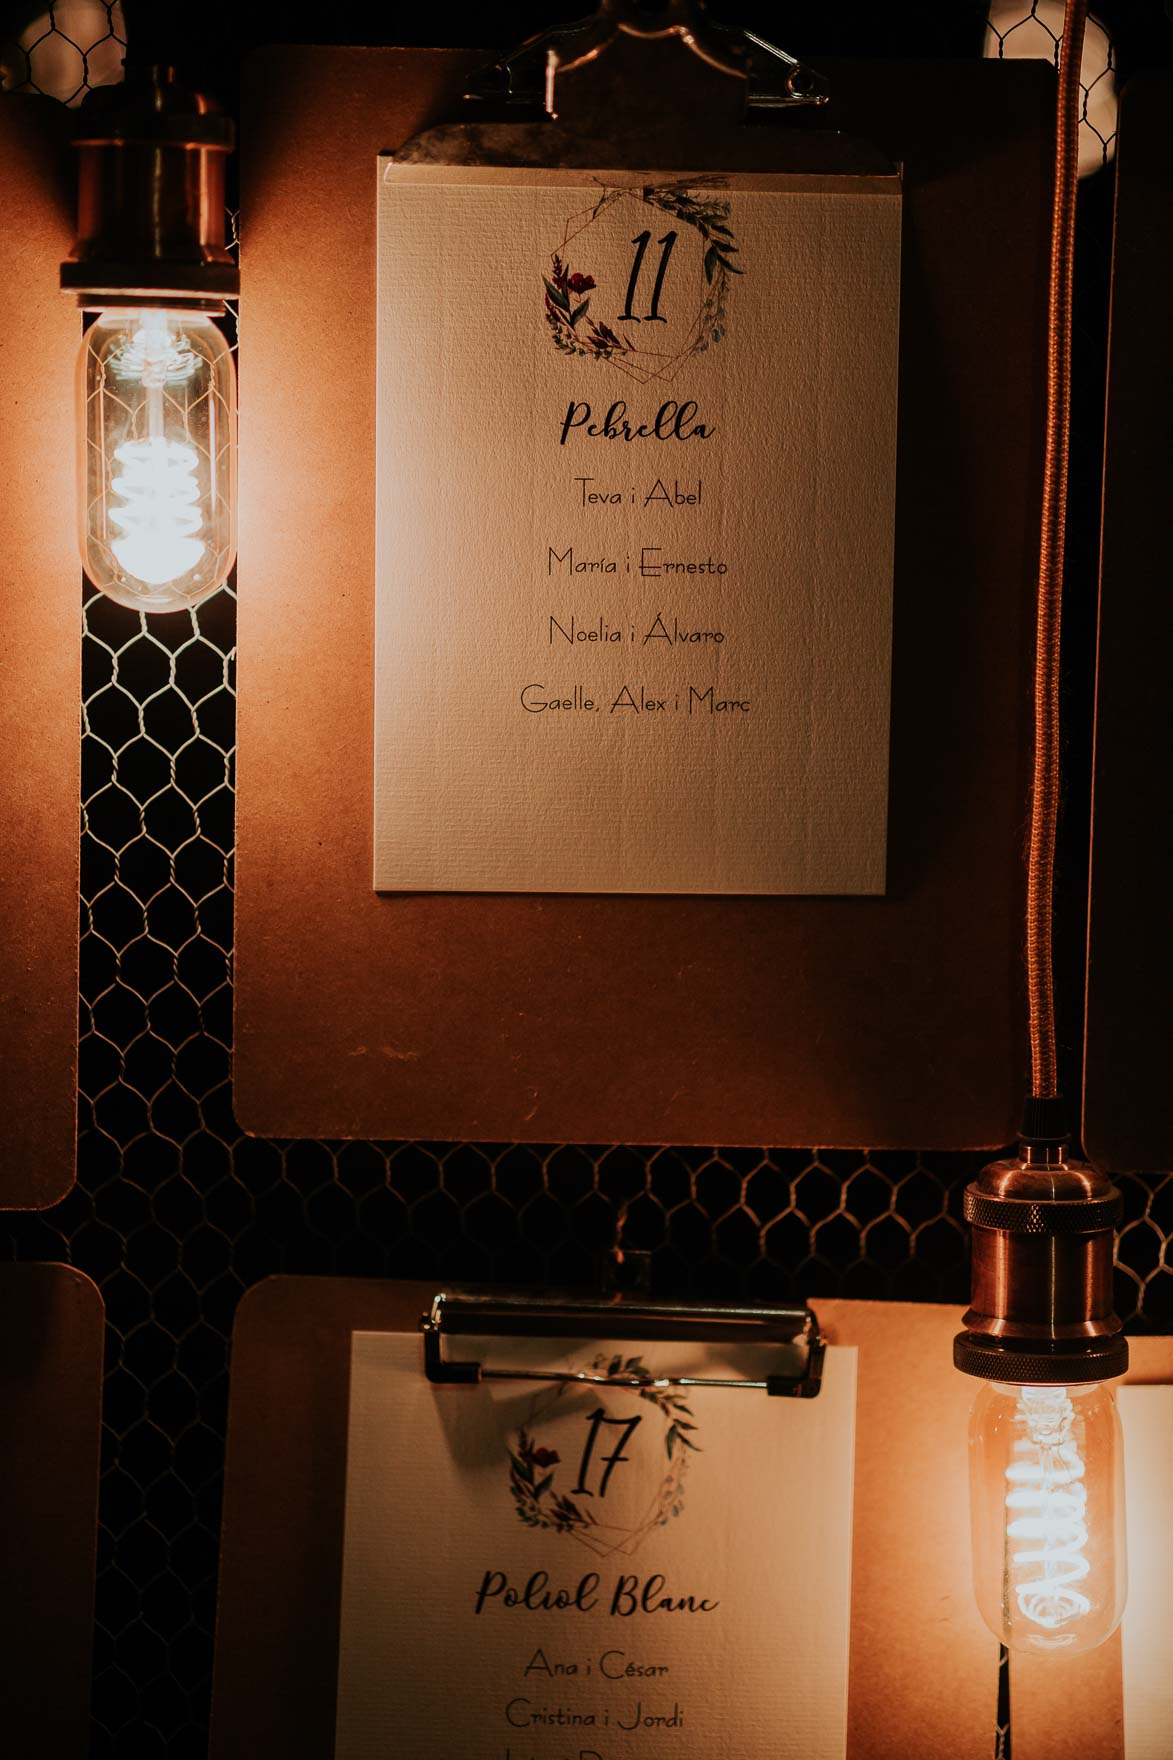 11
Pebrella
Teva i Abel
María i Ernesto
Noelia i Álvaro
Gaelle, Alex i Marc
17
Poliol Blanc
Ana i César
Cristina i Jordi